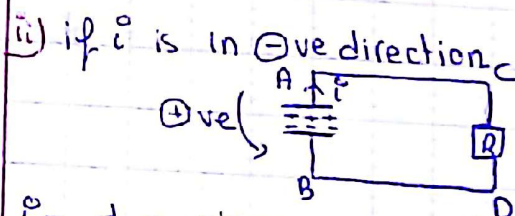 ii) if i is in ⊖ve direction
A i C
⊕ve
+ + +
- - -
R
B D